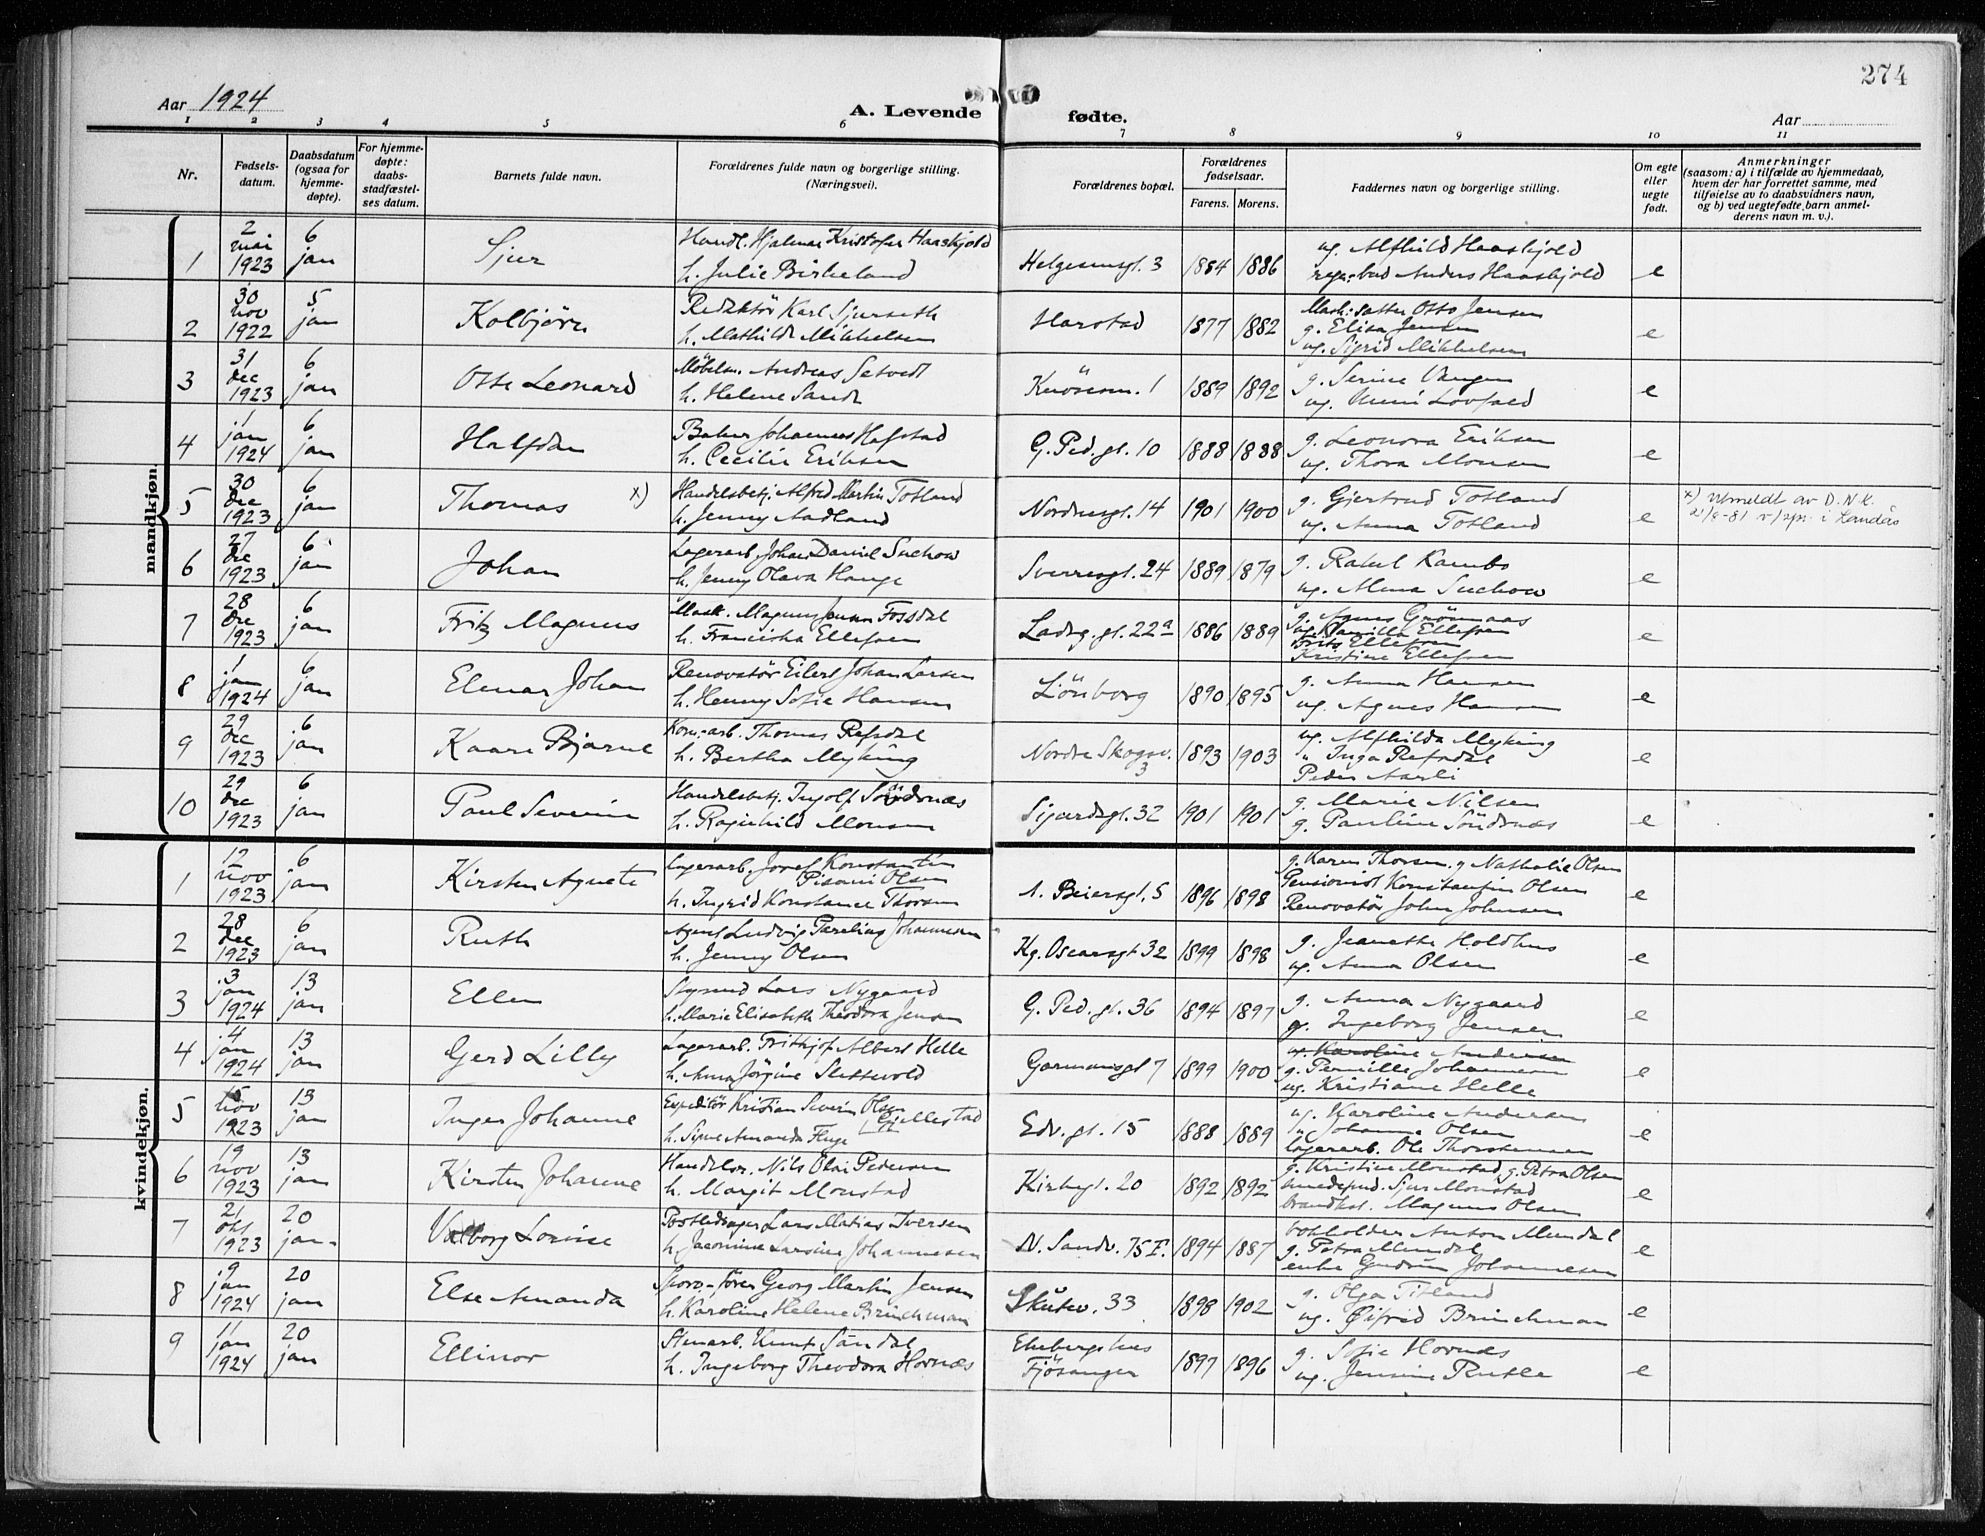 274
Aar 1924
A. Levende fødte.
Aar
1 2 3 4 5 6 7 8 9 10 11
Nr.
Fødsels-
datum.
Daabsdatum
(ogsaa for
hjemme-
døpte).
For hjemme-
døpte:
daabs-
stadfæstel-
ses datum.
Barnets fulde navn.
Forældrenes fulde navn og borgerlige stilling.
(Næringsvei).
Forældrenes bopæl.
Forældrenes
fødselsaar.
Farens. Morens.
Faddernes navn og borgerlige stilling.
Om egte
eller
uegte
født.
Anmerkninger
(saasom: a) i tilfælde av hjemmedaab,
hvem der har forrettet samme, med
tilføielse av to daabsvidners navn,
og b) ved uegtefødte barn anmel-
derens navn m. v.).
mandkjøn.
1 2 mai 1923 6 jan Sjur Handl. Hjalmar Kristofer Haaskjold
h. Julie Birkeland Helgesensgt. 3 1884 1886 ug. Alfhild Haaskjold
Anders Haaskjold e
2 30 nov 1922 5 jan Kolbjörn Redaktör Karl Sjurseth
h. Mathilde Mikkelsen Harstad 1877 1882 Mask.sætter Otto Jensen
g. Elisa Jensen
ug. Sigrid Mikkelsen e
3 31 dec 1923 6 jan Otto Leonard Möbelsn. Andreas Setvedt
h. Helene Sandt Knösesm. 1 1889 1892 g. Serine Vangen
ug. e
4 1 jan 1924 6 jan Halfdan Baker Johannes Hafstad
h. Cecilie Eriksen G. Ped. gt. 10 1888 1888 g. Leonora Eriksen
ug. Thora Monsen e
5 30 dec 1923 6 jan Thomas x) Handelsbetj. Alfred Martin Totland
h. Jenny Aadland Nordnesgt. 14 1901 1900 g. Gjertrud Totland
ug. Anna Totland e x) Utmeldt av D.N.K.
21/8-81 v/spr. i Landås
6 27 dec 1923 6 jan Johan Lagerarb. Johan Daniel Suchow
h. Jenny Olava Hauge Sverresgt. 24 1889 1879 g. Rakel Kambo
ug. Alma Suchow e
7 28 dec 1923 6 jan Fritz Magnus Mask. Magnus Jensen Fossdal
h. Franciska Ellefsen Ladeg. gt. 22a 1886 1889 g. Agnes Grönnaas
ug. Kamilla Ellefsen
Fritz Ellefsen
Kristine Ellefsen e
8 1 jan 1924 6 jan Elenar Johan Renovatör Eilert Johan Larsen
h. Henny Sofie Hansen Lönborg 1890 1895 g. Anna Hansen
ug. Agnes Hansen e
9 29 dec 1923 6 jan Kaare Bjarne Kom.-arb. Thomas Refsdal
h. Bertha Myking Nordre Skogsv. 3 1893 1903 ug. Alfhilda Myking
" Inga Refsdal
Peder Aarli e
10 29 dec 1923 6 jan Paul Severin Handelsbetj. Ingolf Söndnæs
h. Ragnhild Monsen Sigurdsgt. 32 1901 1901 g. Marie Nilsen
g. Pauline Söndnæs e
kvindekjøn.
1 12 nov 1923 6 jan Kirsten Agnete Lagerarb. Josef Konstantin
Pisani Olsen
h. Ingrid Konstance Thorsen A. Beiersgt. 5 1896 1898 g. Karen Thorsen. g Nathalie Olsen
Pensionist Konstantin Olsen
Renovatör John Johnsen e
2 28 dec 1923 6 jan Ruth Agent Ludvig Pareliug Johannesen
h. Jenny Olsen Kg. Oscarsgt 32 1899 1898 g. Jeanette Holdhus
ug. Anna Olsen e
3 3 jan 1924 13 jan Ellen Lars Nygaard
h. Marie Elisabeth Theodora Jensen G. Ped. gt. 36 1894 1897 g. Anna Nygaard
g. Ingeborg Jensen e
4 4 jan 1924 13 jan Gerd Lilly Lagerarb. Frithjof Albert Helle
h. Anna Jörgine Slettevold Garmansgt 7 1899 1900 ug. Karoline Andersen
g. Pernille Johannesen
ug. Kristiane Helle e
5 15 nov 1923 13 jan Inger Johanne Expeditör Kristian Severin Olsen
Gjellestad
h. Signe Amanda Fluge Edv. gt. 15 1888 1889 ug. Karoline Andersen
" Johanne Olsen
lagerarb. Ole Thorstensen e
6 19 nov 1923 13 jan Kirsten Johanne Handelsr. Nils Olai Pedersen
h. Margit Monstad Kirkegt. 20 1892 1892 g. Kristine Monstad, g. Petra Olsen
Sjur Monstad
brandkst. Magnus Olsen e
7 21 okt 1923 20 jan. Valborg Lovise Postledsager Lars Matias Iversen
h. Jacomine Larsine Johannesen N. Sandv. 75 F. 1894 1887 bokholder Anton Mundal
g. Petra Mundal
enke Gudrun Johannesen e
8 9 jan 1924 20 jan Else Amanda Georg Martin Jensen
h. Karoline Helene Brinchman Skutev. 33 1898 1902 g. Olga Titland
ug. Øifrid Brinchman e
9 11 jan 1924 20 jan Ellinor Stenarb. Knut Sandal
h. Ingeborg Theodora Hornæs Ekebergshus
Fjösanger 1897 1896 g. Sofie Hornæs
ug. Jensine Rutle e